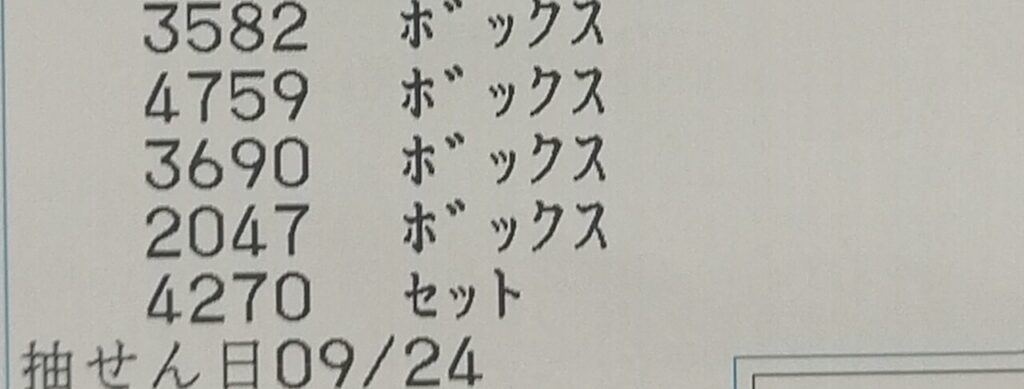 3582 ボックス
4759 ボックス
3690 ボックス
2047 ボックス
4270 セット
抽せん日09/24